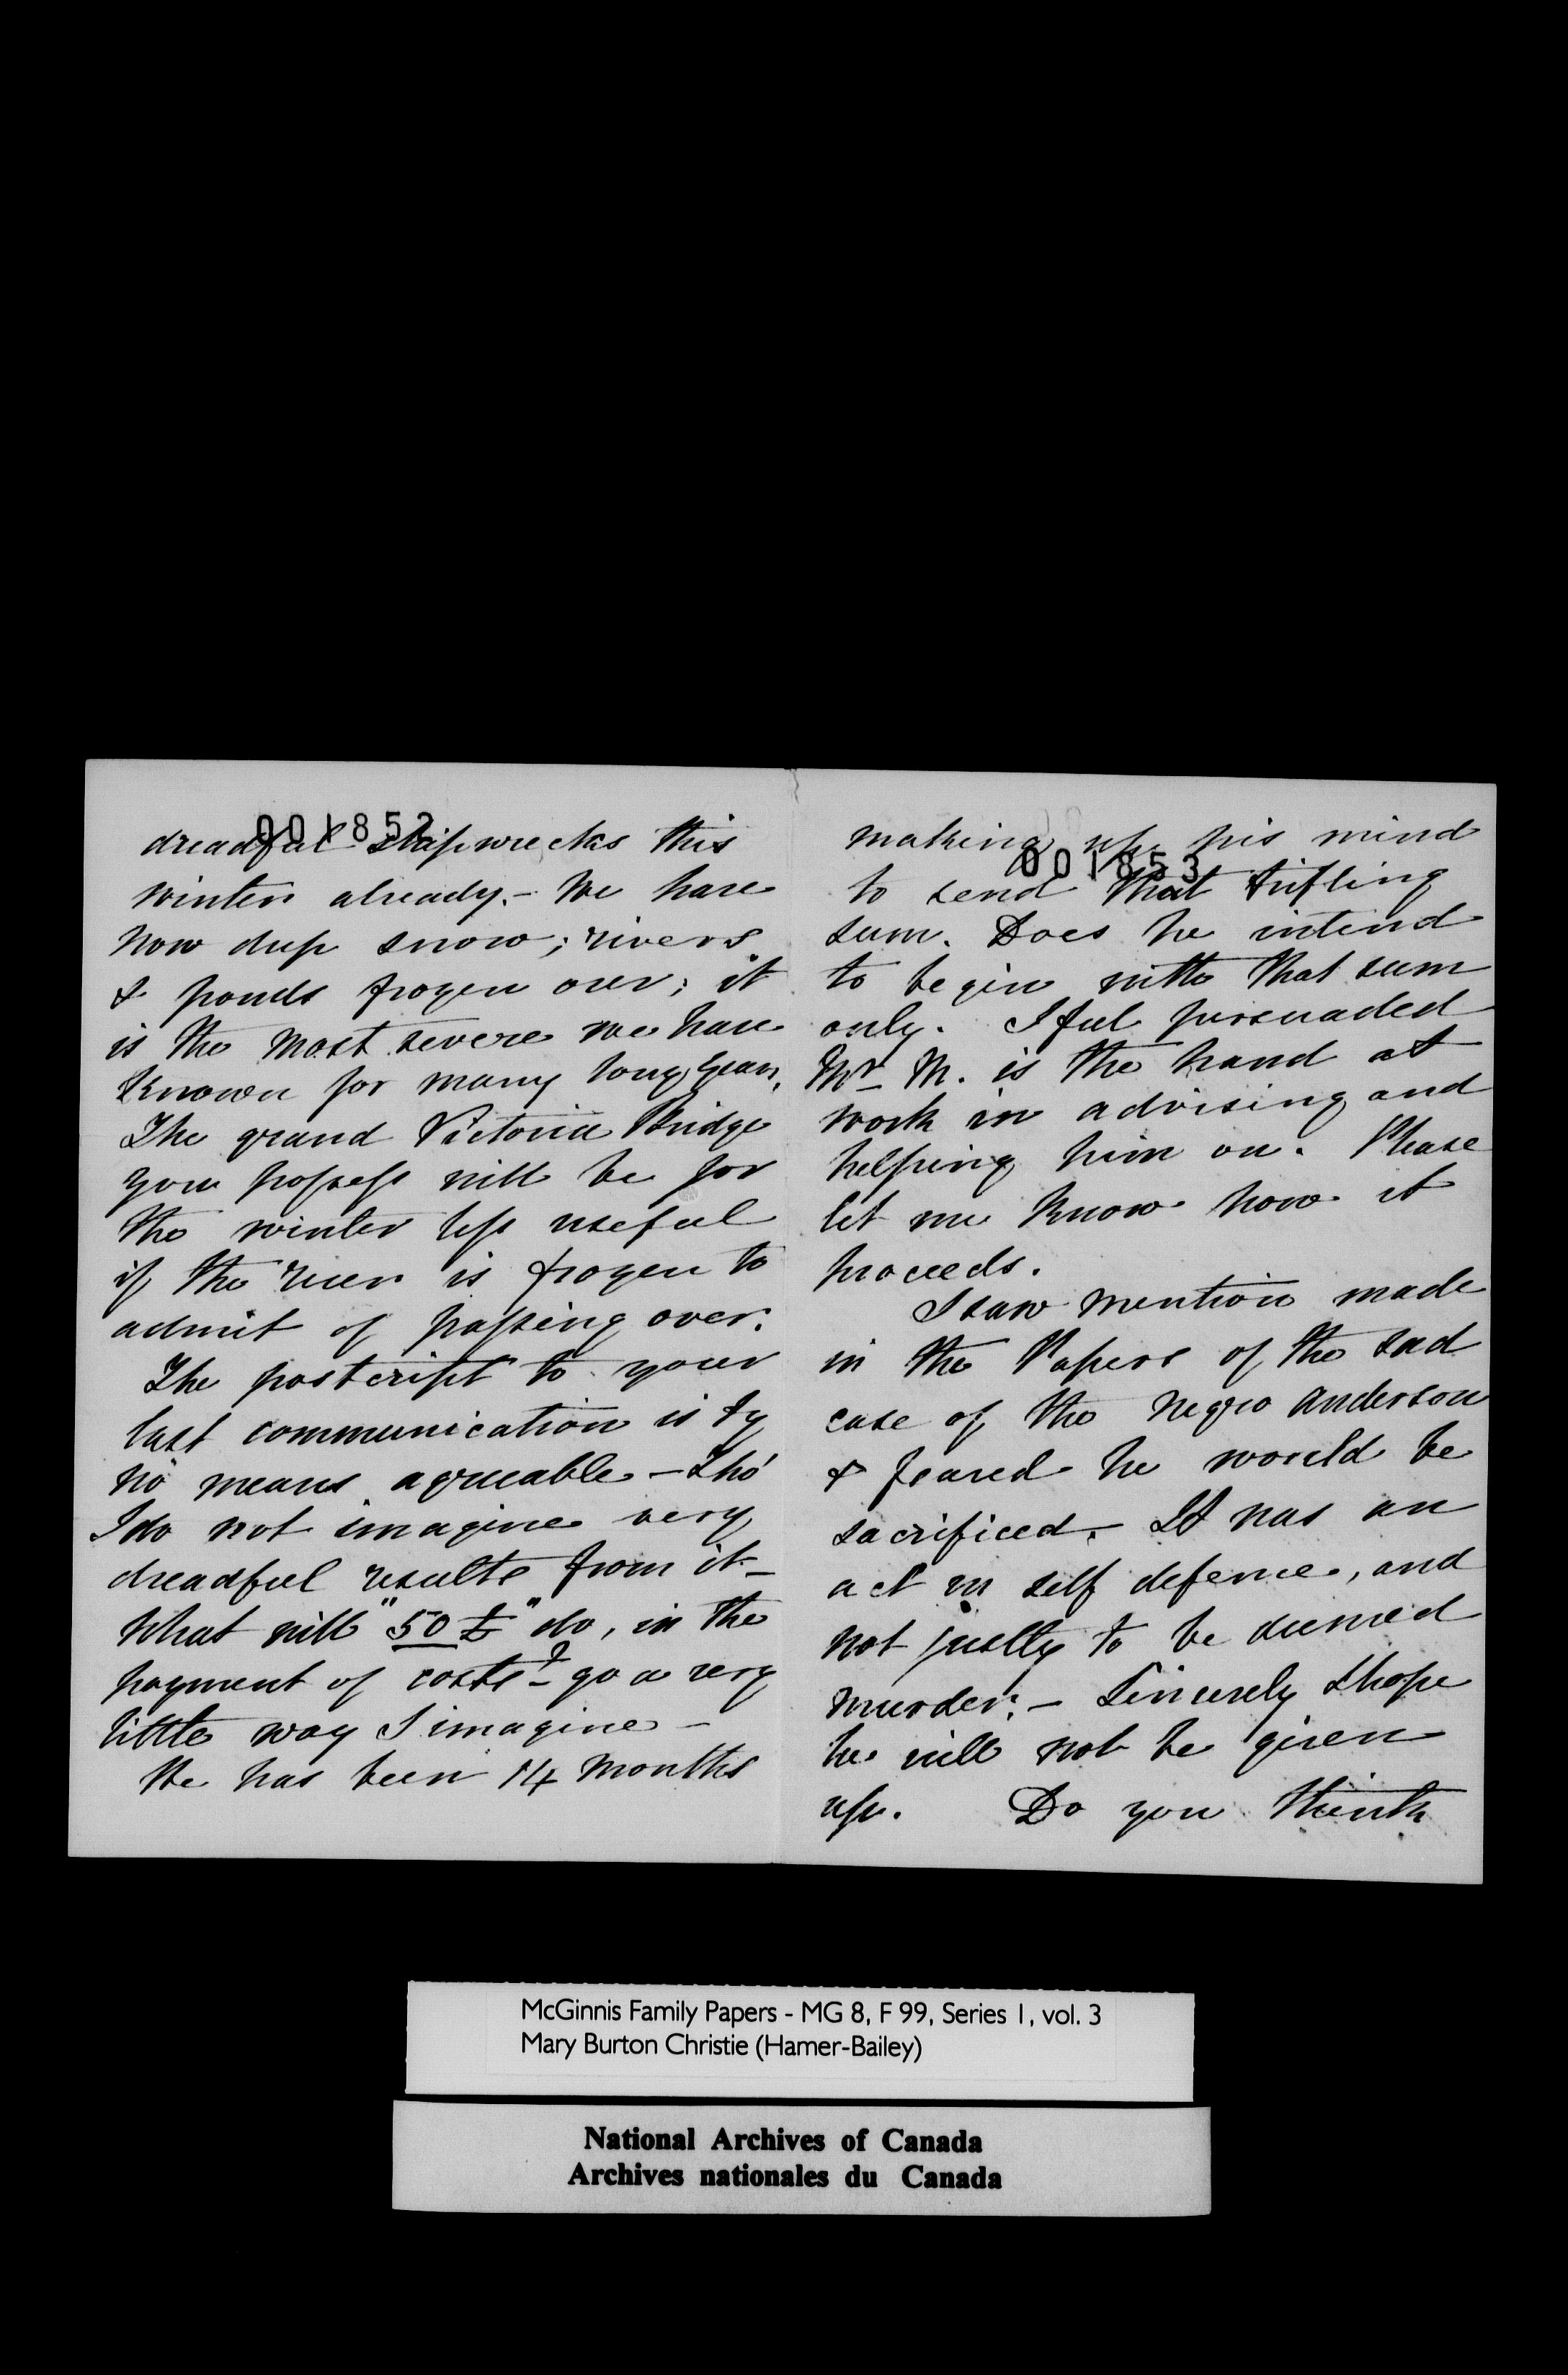 001852
dreadful shipwrecks this
winter already. - We have
now deep snow; rivers
& ponds frozen over; it
is the most severe we have
known for many long years.
The grand Victoria Bridge
you possess will be for
the winter less useful
if the river is frozen to
admit of passing over.
The postcript to your
last communication is by
no means agreeable - tho'
I do not imagine very
dreadful results from it -
What will "50 £" do, in the
payment of costs? - go a very
little way I imagine -
He has been 14 months
001853
making up his mind
to send that trifling
sum. Does he intend
to begin with that sum
only. I feel persuaded
Mr M. is the hand at
work in advising and
helping him on. Please
let me know how it
proceeds.
I saw mention made
in the Papers of the sad
case of the negro Anderson
& feared he would be
sacrificed. It was an
act in self defence, and
not justly to be deemed
murder. - Sincerely I hope
he will not be given
up. Do you think
McGinnis Family Papers - MG 8, F 99, Series 1, vol. 3
Mary Burton Christie (Hamer-Bailey)
National Archives of Canada
Archives nationales du Canada